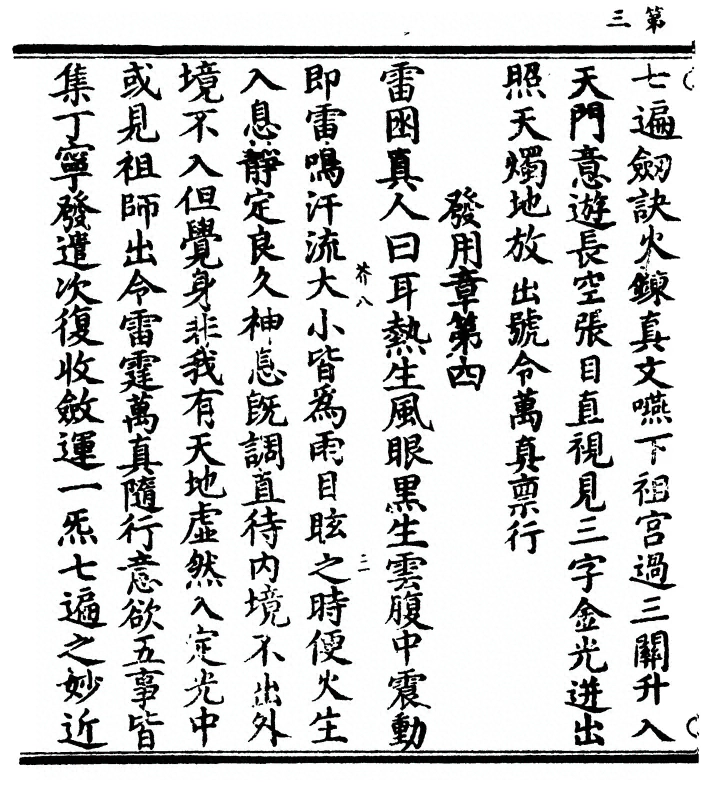 第三
七遍劔訣火鍊真文嚥下祖宮過三關升入
天門意遊長空張目直視見三字金光迸出
照天燭地放出號令萬真禀行
發用章第四
雷囦真人曰耳熱生風眼黒生雲腹中震動
即雷鳴汗流大小皆為雨目眩之時便火生
芥八
三
入息靜定良久神息旣調直待内境不出外
境不入但覺身非我有天地虛然入定光中
或見祖師出令雷霆萬真隨行意欲五事皆
集丁寧發遣次復收斂運一炁七遍之妙近